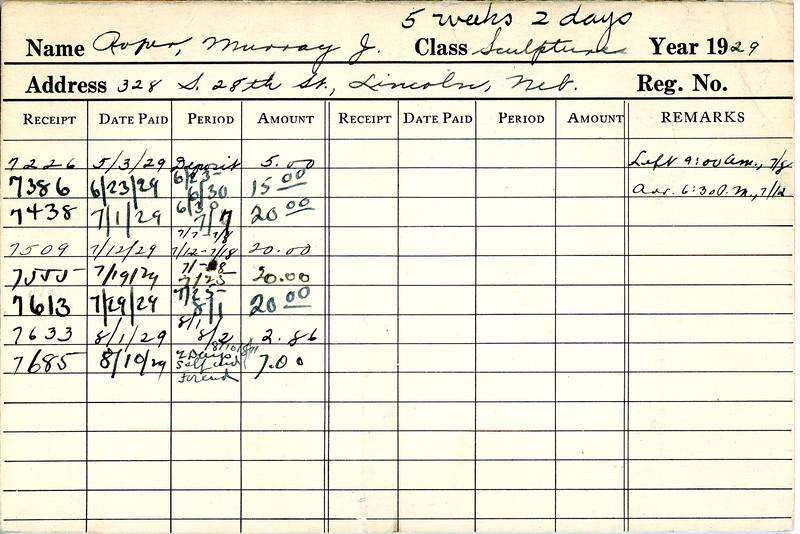 5 weeks 2 days
Name Roper, Murray J. Class Sculpture Year 1929
Address 328 S. 28th St., Lincoln, Neb. Reg. No.
RECEIPT DATE PAID PERIOD AMOUNT RECEIPT DATE PAID PERIOD AMOUNT REMARKS
7226 5/3/29 Deposit 5.00 Left 9:00 a.m., 7/8
7386 6/23/29 6/23- 6/30 15 00 Arr. 6:30 P.M., 7/12
7438 7/1/29 6/30 7/7 20 00
7/7 - 7/8
7509 7/12/29 7/12-7/18 20.00
7555 7/19/29 7/18 7/25 20.00
7613 7/29/29 7/25- 8/1 20 00
7633 8/1/29 8/1 8/2 2.86
7685 8/10/29 2 Days 8/10 8/11 Self and Friend 7.00